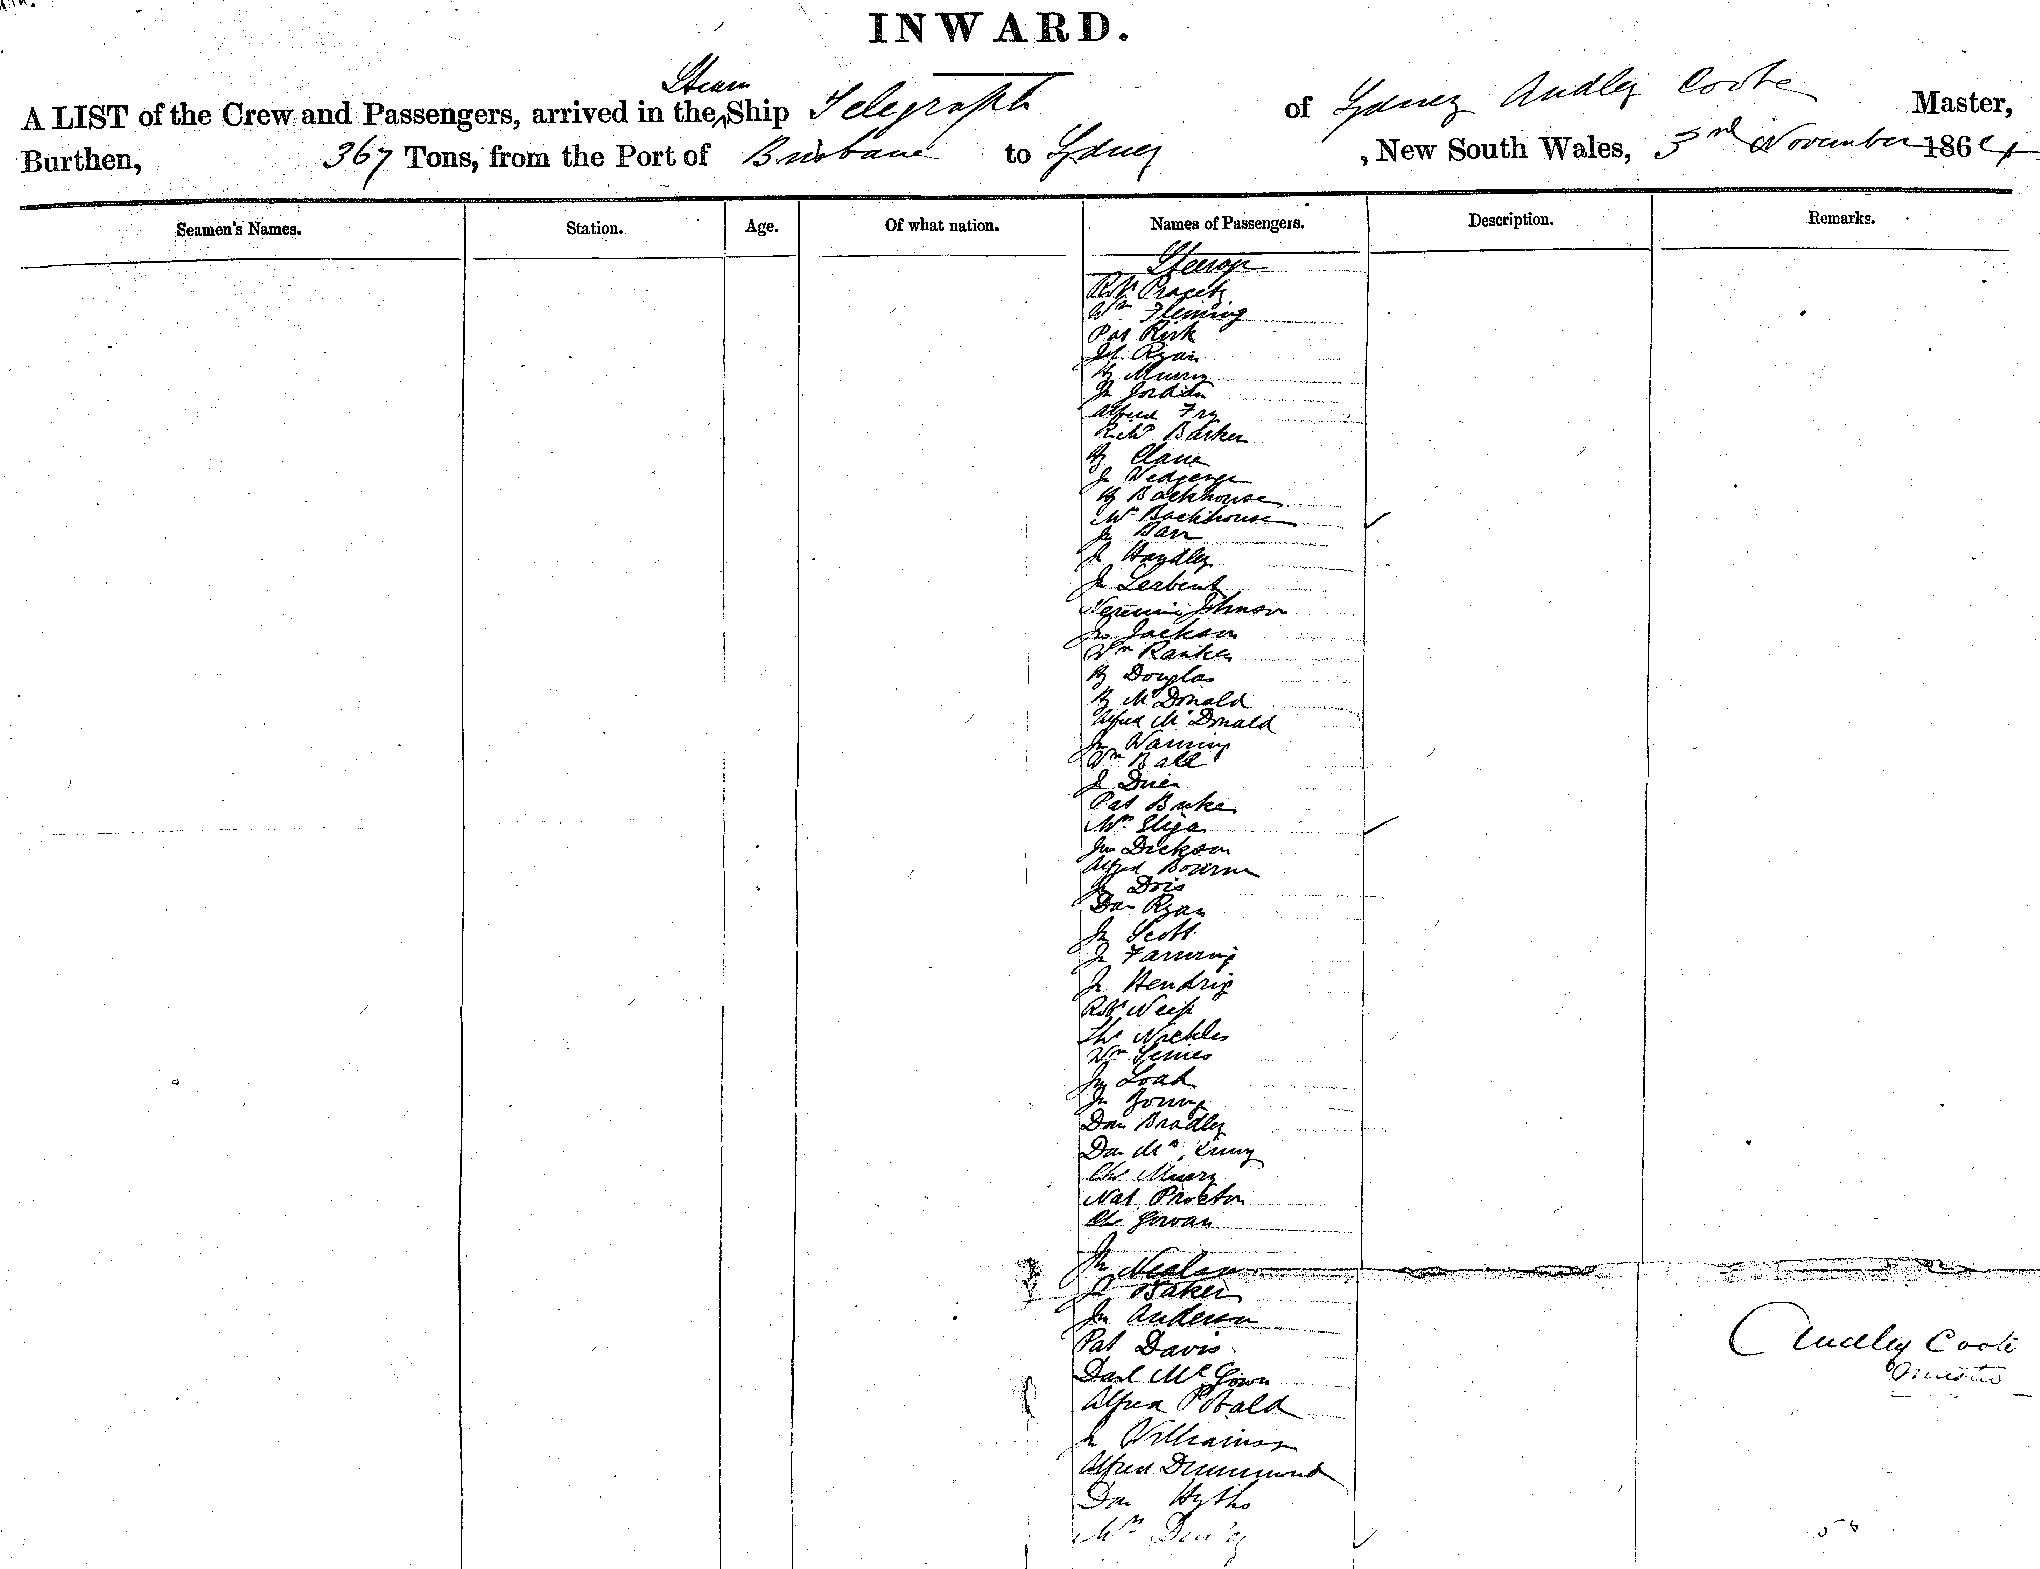 INWARD.
A LIST of the Crew and Passengers, arrived in the Steam Ship Telegraph of Sydney Audley Coote Master,
Burthen, 367 Tons, from the Port of Brisbane to Sydney , New South Wales, 3rd November 1864
Seamen's Names. Station. Age. Of what nation. Names of Passengers. Description. Remarks.
Steerage
Robt
Wm Fleming
Pat Kirk
Jn Ryan
Hy Murry
Jn Jordan
Alfred Fry
Richd Barker
Hy Clane
Jn
Hy Backhouse
Mrs Backhouse
Jn Barr
J Handley
Jn
Johnson
Jas Jackson
Wm Ranken
Hy Douglas
Hy McDonald
Alfred McDonald
Jn Warning
Wm Ball
J
Pat Burke
Mrs Eliza
Jno Dickson
Alfred Bourne
Jn
Dan Ryan
Jn Scott
Jn
Jn Hendrig
Robt
Thos Nickles
Wm
Jn Load
Jn Young
Dan Bradley
Dan
Chs Murry
Nat Procton
Chs Gowan
Jn
J Baker
Jn Anderson
Pat Davis
Danl McGown
Alfred
Jn Williamson
Alfred Drummond
Dan
Mrs
Audley Coote
Master
58